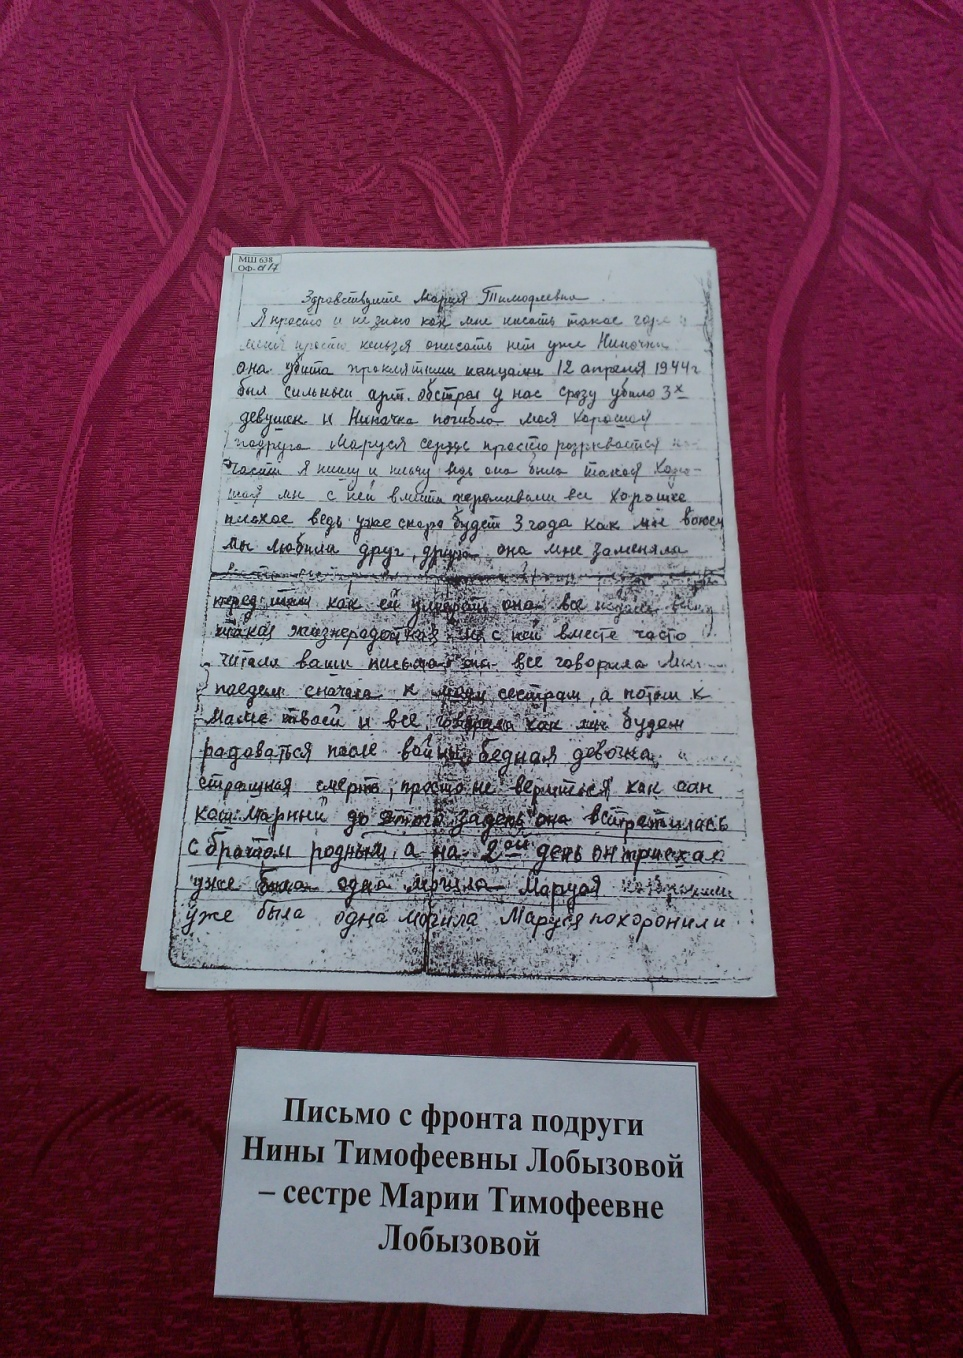 МШ 638
ОФ-
Здравствуйте Мария Тимофеевна
Я просто и не знаю как мне писать такое горе у
меня просто нельзя описать нет уже Ниночки
она убита проклятыми немцами 12 апреля 1944 г
был сильный арт. обстрел у нас сразу убило 3х
девушек и Ниночка погибла моя хорошая
подруга Маруся сердце просто разрывается на
части Я пишу и плачу ведь она была такая хоро-
шая мы с ней вместе переживали все хорошее
плохое ведь уже скоро будет 3 года как мы воюем
мы любили друг, друга она мне заменяла
перед тем как ей умереть она все
такая жизнерадостная мы с ней вместе часто
читали ваши письма она все говорила
поедем сначала к моим сестрам, а потом к
маме твоей и все говорила как мы будем
радоваться после войны бедная девочка
страшная смерть, просто не верится как сон
кошмарный до этого за день она встретилась
с братом родным, а на 2ой день он приехал
уже была одна могила Маруся похоронили
уже была одна могила Маруся похоронили
Письмо с фронта подруги
Нины Тимофеевны Лобызовой
– сестре Марии Тимофеевне
Лобызовой